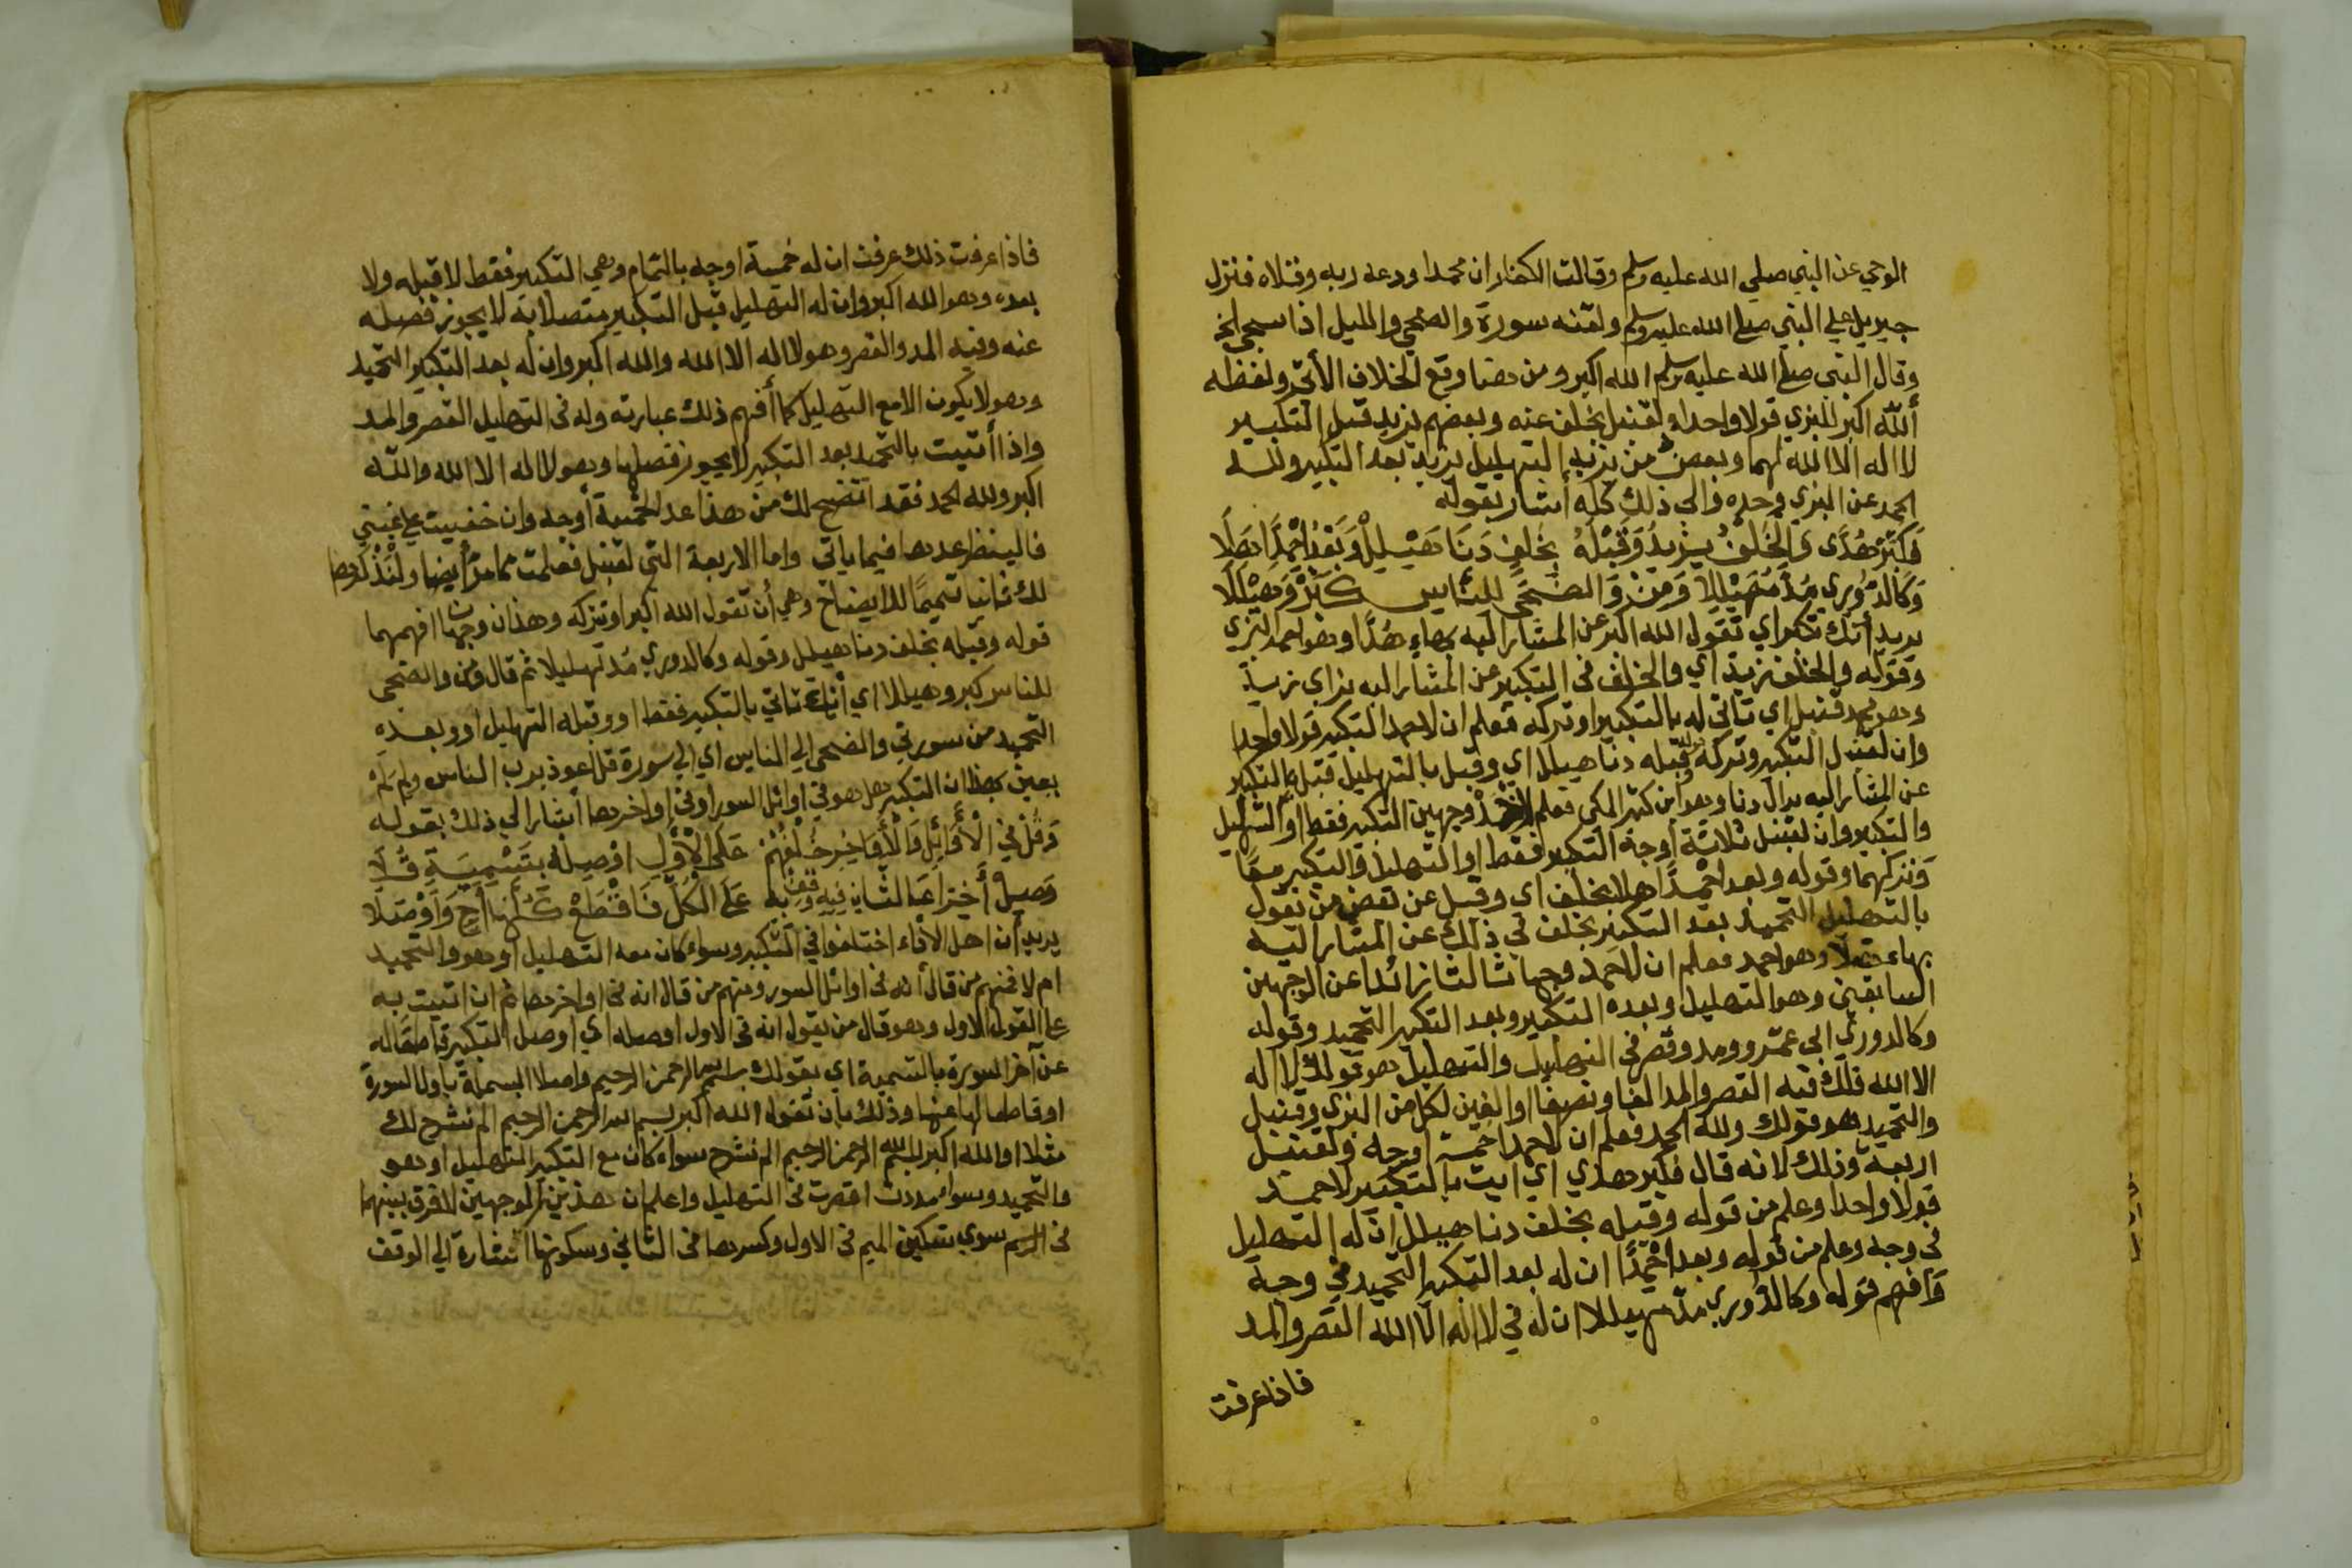 الوحي عن النبي صلي الله عليه وسلم وقالت الكفار ان محمدا ودعه ربه وقلاه فنزل
جبريل علي النبي صلي الله عليه وسلم ولقنه سورة والضحي والليل اذا سجي الخ
وقال النبي صلي الله عليه وسلم الله اكبر ومن هنا وقع الخلاف الأتي ولفظه
أللّه اكبر للبزي قولا واحدا ولقنبل بخلف عنه وبعضهم يزيد قبل التكبير
لا اله الا الله لهما وبعض من يزيد التهليل يزيد بعد التكبير ولله
الحمد عن البزي وحده والي ذلك كله أشار بقوله
فَكَبِّرْ هُدًى وَالْخُلْفُ زِدْ وَقَبْلَهُ بِخُلْفٍ دَنَا هَيْلِلْ وَبَعْدُ احْمِدًا هَلَا
وَكَالدُّورِي مُدْ مُهَيْلِلًا وَمِنْ وَالضُّحَى لِلنَّاسِ كَبِّرْ وَهَيْلِلَا
يريد أنك تكبر اي تقول الله اكبر عن المشار اليه بهاء هُدًا وهو احمد البزي
وقوله والخلف زد اي والخلف في التكبير عن المشار اليه بزاي زد
وهو محمد قنبل اي تاتي له بالتكبير او تركه فعلم ان لاحمد التكبير قولا واحدا
وان لقنبل التكبير وتركه وقبله دنا هيللا اي وقبل بالتهليل قبل التكبير
عن المشار اليه بدال دنا وهو ابن كثير المكي فعلم لاحمد وجهين التكبير فقط او التهليل
والتكبير وان لقنبل ثلاثة أوجه التكبير فقط او التهليل والتكبير معًا
وتركهما وقوله وبعد احمدًا هلا بخلف اي وقبل عن بعض من يقول
بالتهليل التحميد بعد التكبير بخلف في ذلك عن المشار اليه
بهاء هلا وهو احمد فعلم ان لاحمد وجها ثالثا زائدا عن الوجهين
السابقين وهو التهليل وبعده التكبير وبعد التكبير التحميد وقوله
وكالدوري ابي عمرو ومد وقصر في التهليل والتهليل هو قولك لا اله
الا الله فلك فيه القصر والمد الفا ونصفا او الفين لكل من البزي وقنبل
والتحميد هو قولك ولله الحمد فعلم ان لاحمد خمسة اوجه ولقنبل
اربعة وذلك لانه قال فكبر هدي اي ايت بالتكبير لاحمد
قولا واحدا وعلم من قوله وقبله بخلف دنا هيلل ان له التهليل
في وجه وعلم من قوله وبعد احمدًا ان له بعد التكبير التحميد في وجه
وافهم قوله وكالدوري مد مهيللا ان له في لا اله الا الله القصر والمد
فاذا عرفت
فاذا عرفت ذلك عرفت ان له خمسة اوجه بالتمام وهي التكبير فقط لا قبله ولا
بعده وهو الله اكبر وان له التهليل قبل التكبير متصلا به لا يجوز فصله
عنه وفيه المد والقصر وهو لا اله الا الله والله اكبر وان له بعد التكبير التحميد
وهو لا يكون الا مع التهليل كما أفهم ذلك عبارته وله في التهليل القصر والمد
واذا أتيت بالتحميد بعد التكبير لا يجوز فصلها وهو لا اله الا الله والله
اكبر ولله الحمد فقد اتضح لك من هذا عد الخمسة أوجه وان خفيت علي غبي
فالينظر عدها فيما ياتي واما الاربعة التي لقنبل فعلمت مما مرّ أيضا ولنذكرها
لك ثانيا تتميمًا للايضاح وهي أن تقول الله اكبر او تتركه وهذان وجهان افهمهما
قوله وقبله بخلف دنا هيلل وقوله وكالدوري مد تهليلا ثم قال ومن والضحي
للناس كبر وهيللا اي أنك تاتي بالتكبير فقط او وقبله التهليل او وبعده
التحميد من سورتي والضحي الي الناس اي الي سورة قل اعوذ برب الناس ولم
يعين هذا ان التكبير هل هو في اوائل السور او في اواخرها أشار الي ذلك بقوله
وَقُلْ فِي الْأَوَائِلِ وَالْأَوَاخِرِ خُلْفُهُمْ عَلَى الْأَوَّلِ اوْصِلْهُ بِتَسْمِيَةٍ
وَصِلْ أَخِرًا عَ الثَّانِ فِيهِ وَقِفْ بِهِ عَلَى الْكُلِّ فَاقْطَعْ
يريد أن اهل الاداء اختلفوا في التكبير وسواء كان معه التهليل او هو والتحميد
ام لا فمنهم من قال أنه في اوائل السور ومنهم من قال انه في اواخرها ثم ان اتيت به
علي القول الاول وهو قال من يقول انه في الاول اوصله اي اوصل التكبير قاطعا له
عن آخر السورة بالتسمية اي بقولك بسم الله الرحمن الرحيم واصلا البسملة باول السورة
او قاطعا لها عنها وذلك بان تقول الله اكبر بسم الله الرحمن الرحيم الم نشرح لك
مثلا او الله اكبر بسم الله الرحمن الرحيم الم نشرح سواء كان مع التكبير التهليل او هو
والتحميد وسواء مددت او قصرت في التهليل واعلم ان هذين الوجهين لا فرق بينهما
في الرسم سوي تسكين الميم في الاول وكسرها في الثاني وسكونها اشارة الي الوقف